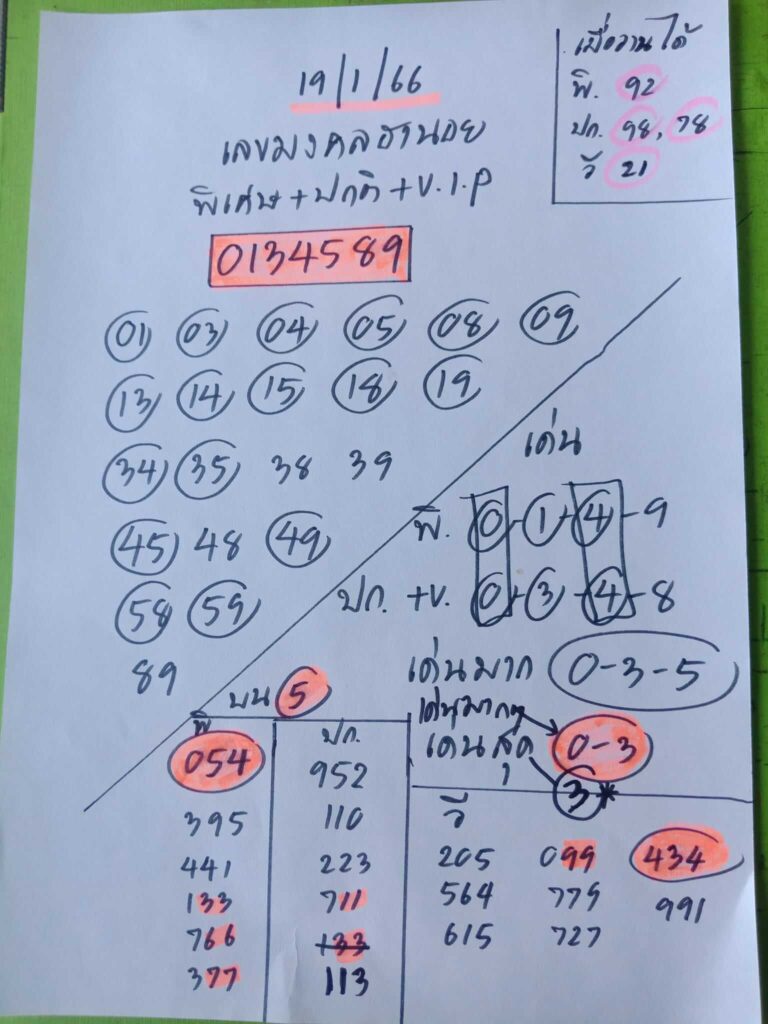 19/1/66
เลขมงคลฮานอย
พิเศษ+ปกติ+V.I.P
0134589
เมื่อวานได้
พิ. 92
ปก. 98, 78
วี 21
01 03 04 05 08 09
13 14 15 18 19
34 35 38 39
45 48 49
58 59
89
เด่น
พิ. 0-1-4-9
ปก. +V. 0-3-4-8
เด่นมาก 0-3-5
เด่นมากๆ
เด่นสุด 0-3
3*
บน 5
พิ
054
395
441
133
766
377
ปก.
952
110
223
711
133
113
วี
205 099 434
564 779 991
615 727